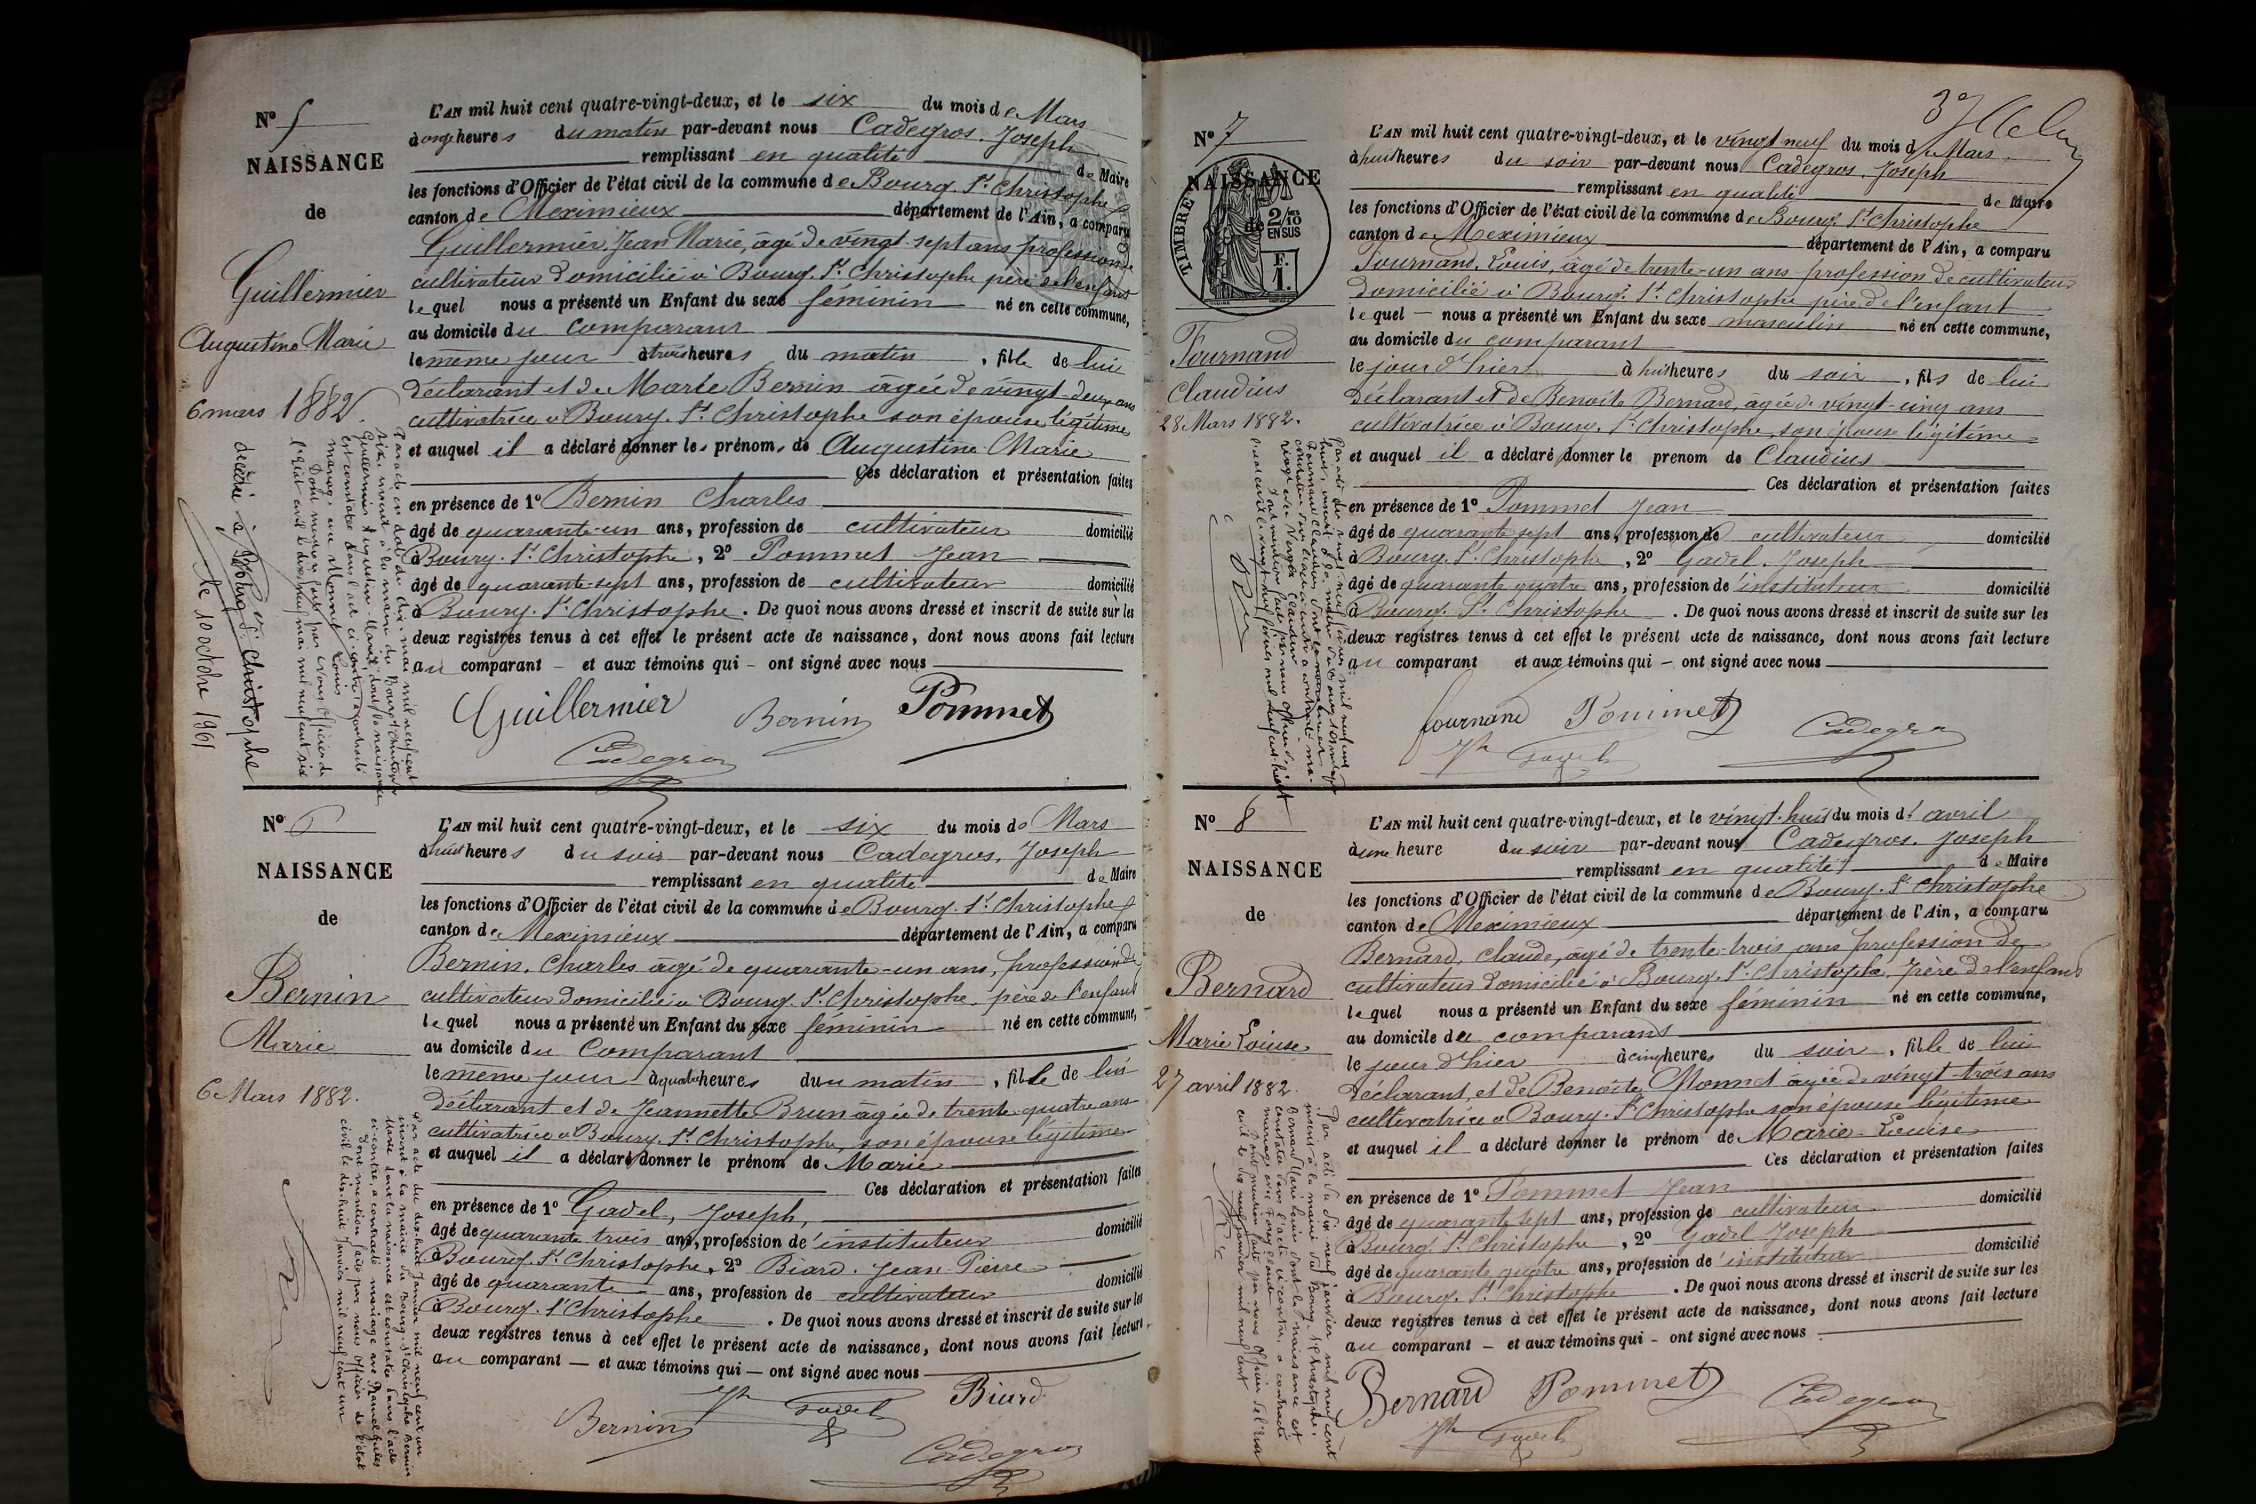 N° 5
NAISSANCE
de
Guillermier
Augustine Marie
6 mars 1882
décédée à Bourg St Christophe
le 10 octobre 1961
L'AN mil huit cent quatre-vingt-deux, et le six du mois de Mars
à onze heures du matin par-devant nous Cadegros, Joseph
remplissant en qualité de Maire
les fonctions d'Officier de l'état civil de la commune de Bourg. St. Christophe
canton de Meximieux département de l'Ain, a comparu
Guillermier, Jean Marie, âgé de vingt-sept ans profession de
cultivateur domicilié à Bourg. St. Christophe père de l'enfant
lequel nous a présenté un Enfant du sexe féminin né en cette commune,
au domicile du comparant
le même jour à trois heures du matin, fille de lui
déclarant et de Marie Bernin âgée de vingt-deux ans
cultivatrice à Bourg. St. Christophe son épouse légitime
et auquel il a déclaré donner les prénoms de Augustine Marie
Ces déclaration et présentation faites
en présence de 1° Bernin Charles
âgé de quarante-un ans, profession de cultivateur domicilié
à Bourg. St. Christophe, 2° Pommet Jean
âgé de quarante-sept ans, profession de cultivateur domicilié
à Bourg. St. Christophe. De quoi nous avons dressé et inscrit de suite sur les
deux registres tenus à cet effet le présent acte de naissance, dont nous avons fait lecture
au comparant et aux témoins qui ont signé avec nous
Guillermier Bernin Pommet
Cadegros
N° 6
NAISSANCE
de
Bernin
Marie
6 Mars 1882.
Par acte du dix-huit Janvier mil neuf cent un
inscrit à la mairie du Bourg-St-Christophe Bernin
Marie dont la naissance est constatée dans l'acte
ci-contre, a contracté mariage avec
Dont mention faite par nous Officier de l'état
civil le dix-huit Janvier mil neuf cent un
L'AN mil huit cent quatre-vingt-deux, et le six du mois de Mars
à huit heures du soir par-devant nous Cadegros, Joseph
remplissant en qualité de Maire
les fonctions d'Officier de l'état civil de la commune de Bourg. St. Christophe
canton de Meximieux département de l'Ain, a comparu
Bernin, Charles âgé de quarante-un ans, profession de
cultivateur domicilié à Bourg. St. Christophe, père de l'enfant
lequel nous a présenté un Enfant du sexe féminin né en cette commune,
au domicile du Comparant
le même jour à quatre heures du matin, fille de lui
déclarant et de Jeannette Brun âgée de trente-quatre ans
cultivatrice à Bourg. St. Christophe, son épouse légitime
et auquel il a déclaré donner le prénom de Marie
Ces déclaration et présentation faites
en présence de 1° Gadel, Joseph,
âgé de quarante trois ans, profession de instituteur domicilié
à Bourg. St. Christophe, 2° Biard. Jean Pierre
âgé de quarante ans, profession de cultivateur domicilié
à Bourg. St. Christophe. De quoi nous avons dressé et inscrit de suite sur les
deux registres tenus à cet effet le présent acte de naissance, dont nous avons fait lecture
au comparant et aux témoins qui ont signé avec nous
Bernin Jh Gadel Biard
Cadegros
N° 7
NAISSANCE
de
TIMBRE
2/10 EN SUS
F. 1.
Fournand
Claudius
28 Mars 1882.
L'AN mil huit cent quatre-vingt-deux, et le vingt neuf du mois de Mars
à huit heures du soir par-devant nous Cadegros, Joseph
remplissant en qualité de Maire
les fonctions d'Officier de l'état civil de la commune de Bourg. St Christophe
canton de Meximieux département de l'Ain, a comparu
Fournand, Louis, âgé de trente-un ans profession de cultivateur
domicilié à Bourg. St. Christophe père de l'enfant
lequel nous a présenté un Enfant du sexe masculin né en cette commune,
au domicile du comparant
le jour d'hier à huit heures du soir, fils de lui
déclarant et de Benoite Bernard, âgée de vingt-cinq ans
cultivatrice à Bourg. St. Christophe, son épouse légitime
et auquel il a déclaré donner le prenom de Claudius
Ces déclaration et présentation faites
en présence de 1° Pommet Jean
âgé de quarante sept ans, profession de cultivateur domicilié
à Bourg. St. Christophe, 2° Gadel. Joseph
âgé de quarante quatre ans, profession de instituteur domicilié
à Bourg. St. Christophe. De quoi nous avons dressé et inscrit de suite sur les
deux registres tenus à cet effet le présent acte de naissance, dont nous avons fait lecture
au comparant et aux témoins qui ont signé avec nous
fournand Pommet Cadegros
Jh Gadel
N° 8
NAISSANCE
de
Bernard
Marie Louise
27 avril 1882.
L'AN mil huit cent quatre-vingt-deux, et le vingt-huit du mois d'avril
à une heure du soir par-devant nous Cadegros. Joseph
remplissant en qualité de Maire
les fonctions d'Officier de l'état civil de la commune de Bourg. St Christophe
canton de Meximieux département de l'Ain, a comparu
Bernard, Claude, âgé de trente-trois ans profession de
cultivateur domicilié à Bourg. St. Christophe, père de l'enfant
lequel nous a présenté un Enfant du sexe féminin né en cette commune,
au domicile du comparant
le jour d'hier à cinq heures du soir, fille de lui
déclarant, et de Benoite Monnet âgée de vingt-trois ans
cultivatrice à Bourg. St Christophe son épouse légitime
et auquel il a déclaré donner le prénom de Marie-Louise
Ces déclaration et présentation faites
en présence de 1° Pommet Jean
âgé de quarante sept ans, profession de cultivateur domicilié
à Bourg. St. Christophe, 2° Gadel Joseph
âgé de quarante quatre ans, profession de instituteur domicilié
à Bourg. St. Christophe. De quoi nous avons dressé et inscrit de suite sur les
deux registres tenus à cet effet le présent acte de naissance, dont nous avons fait lecture
au comparant et aux témoins qui ont signé avec nous
Bernard Pommet Cadegros
Jh Gadel